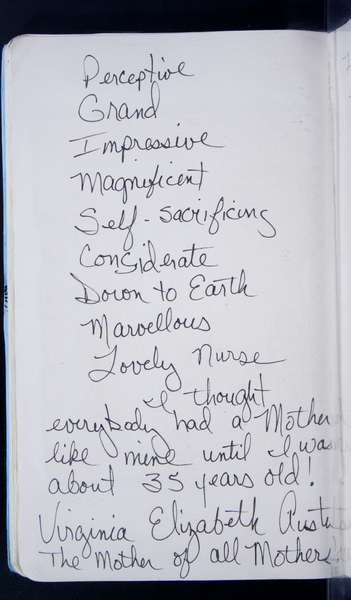 Perceptive
Grand
Impressive
Magnificent
Self-sacrificing
Considerate
Down to Earth
Marvellous
Lovely Nurse
I thought
everybody had a Mother
like mine until I was
about 35 years old!
Virginia Elizabeth
The Mother of all Mothers